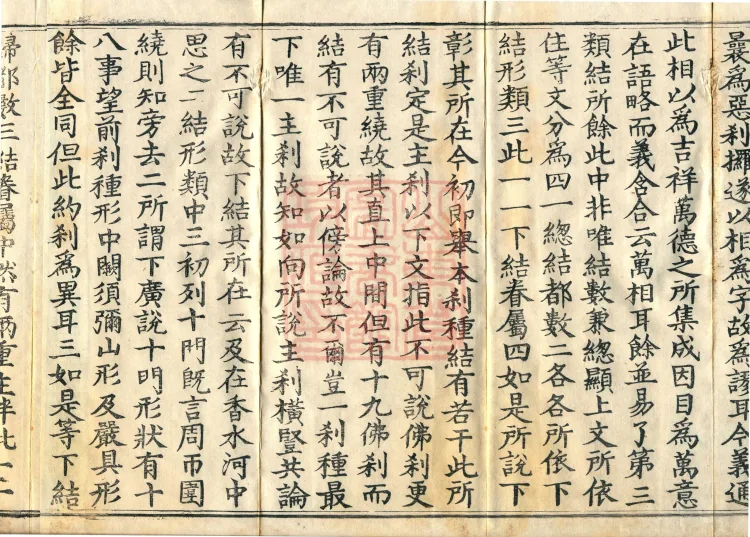 曩為惡刹攞遂以相為字故為謬耳今義通
此相以為吉祥萬德之所集成因目為萬意
在語略而義含合云萬相耳餘並易了第三
類結所餘此中非唯結數兼總顯上文所依
住等文分為四一總結都數二各各所依下
結形類三此一一下結眷屬四如是所說下
彰其所在今初即舉本刹種結有若干此所
結刹定是主刹以下文指此不可說佛刹更
有兩重繞故其直上中間但有十九佛刹而
結有不可說者以傍論故不爾豈一刹種最
下唯一主刹故知如向所說主刹橫豎共論
有不可說故下結其所在云及在香水河中
思之二結形類中三初列十門既言周帀圍
繞則知旁去二所謂下廣說十門形狀有十
八事望前刹種形中闕須彌山形及嚴具形
餘皆全同但此約刹為異耳三如是等下結
歸都數三結眷屬中然有兩重在伴此一二